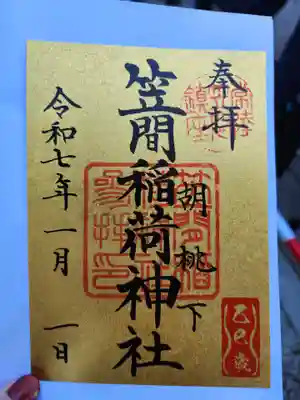 奉拝
胡桃下
笠間稲荷神社
令和七年一月一日
乙巳歳